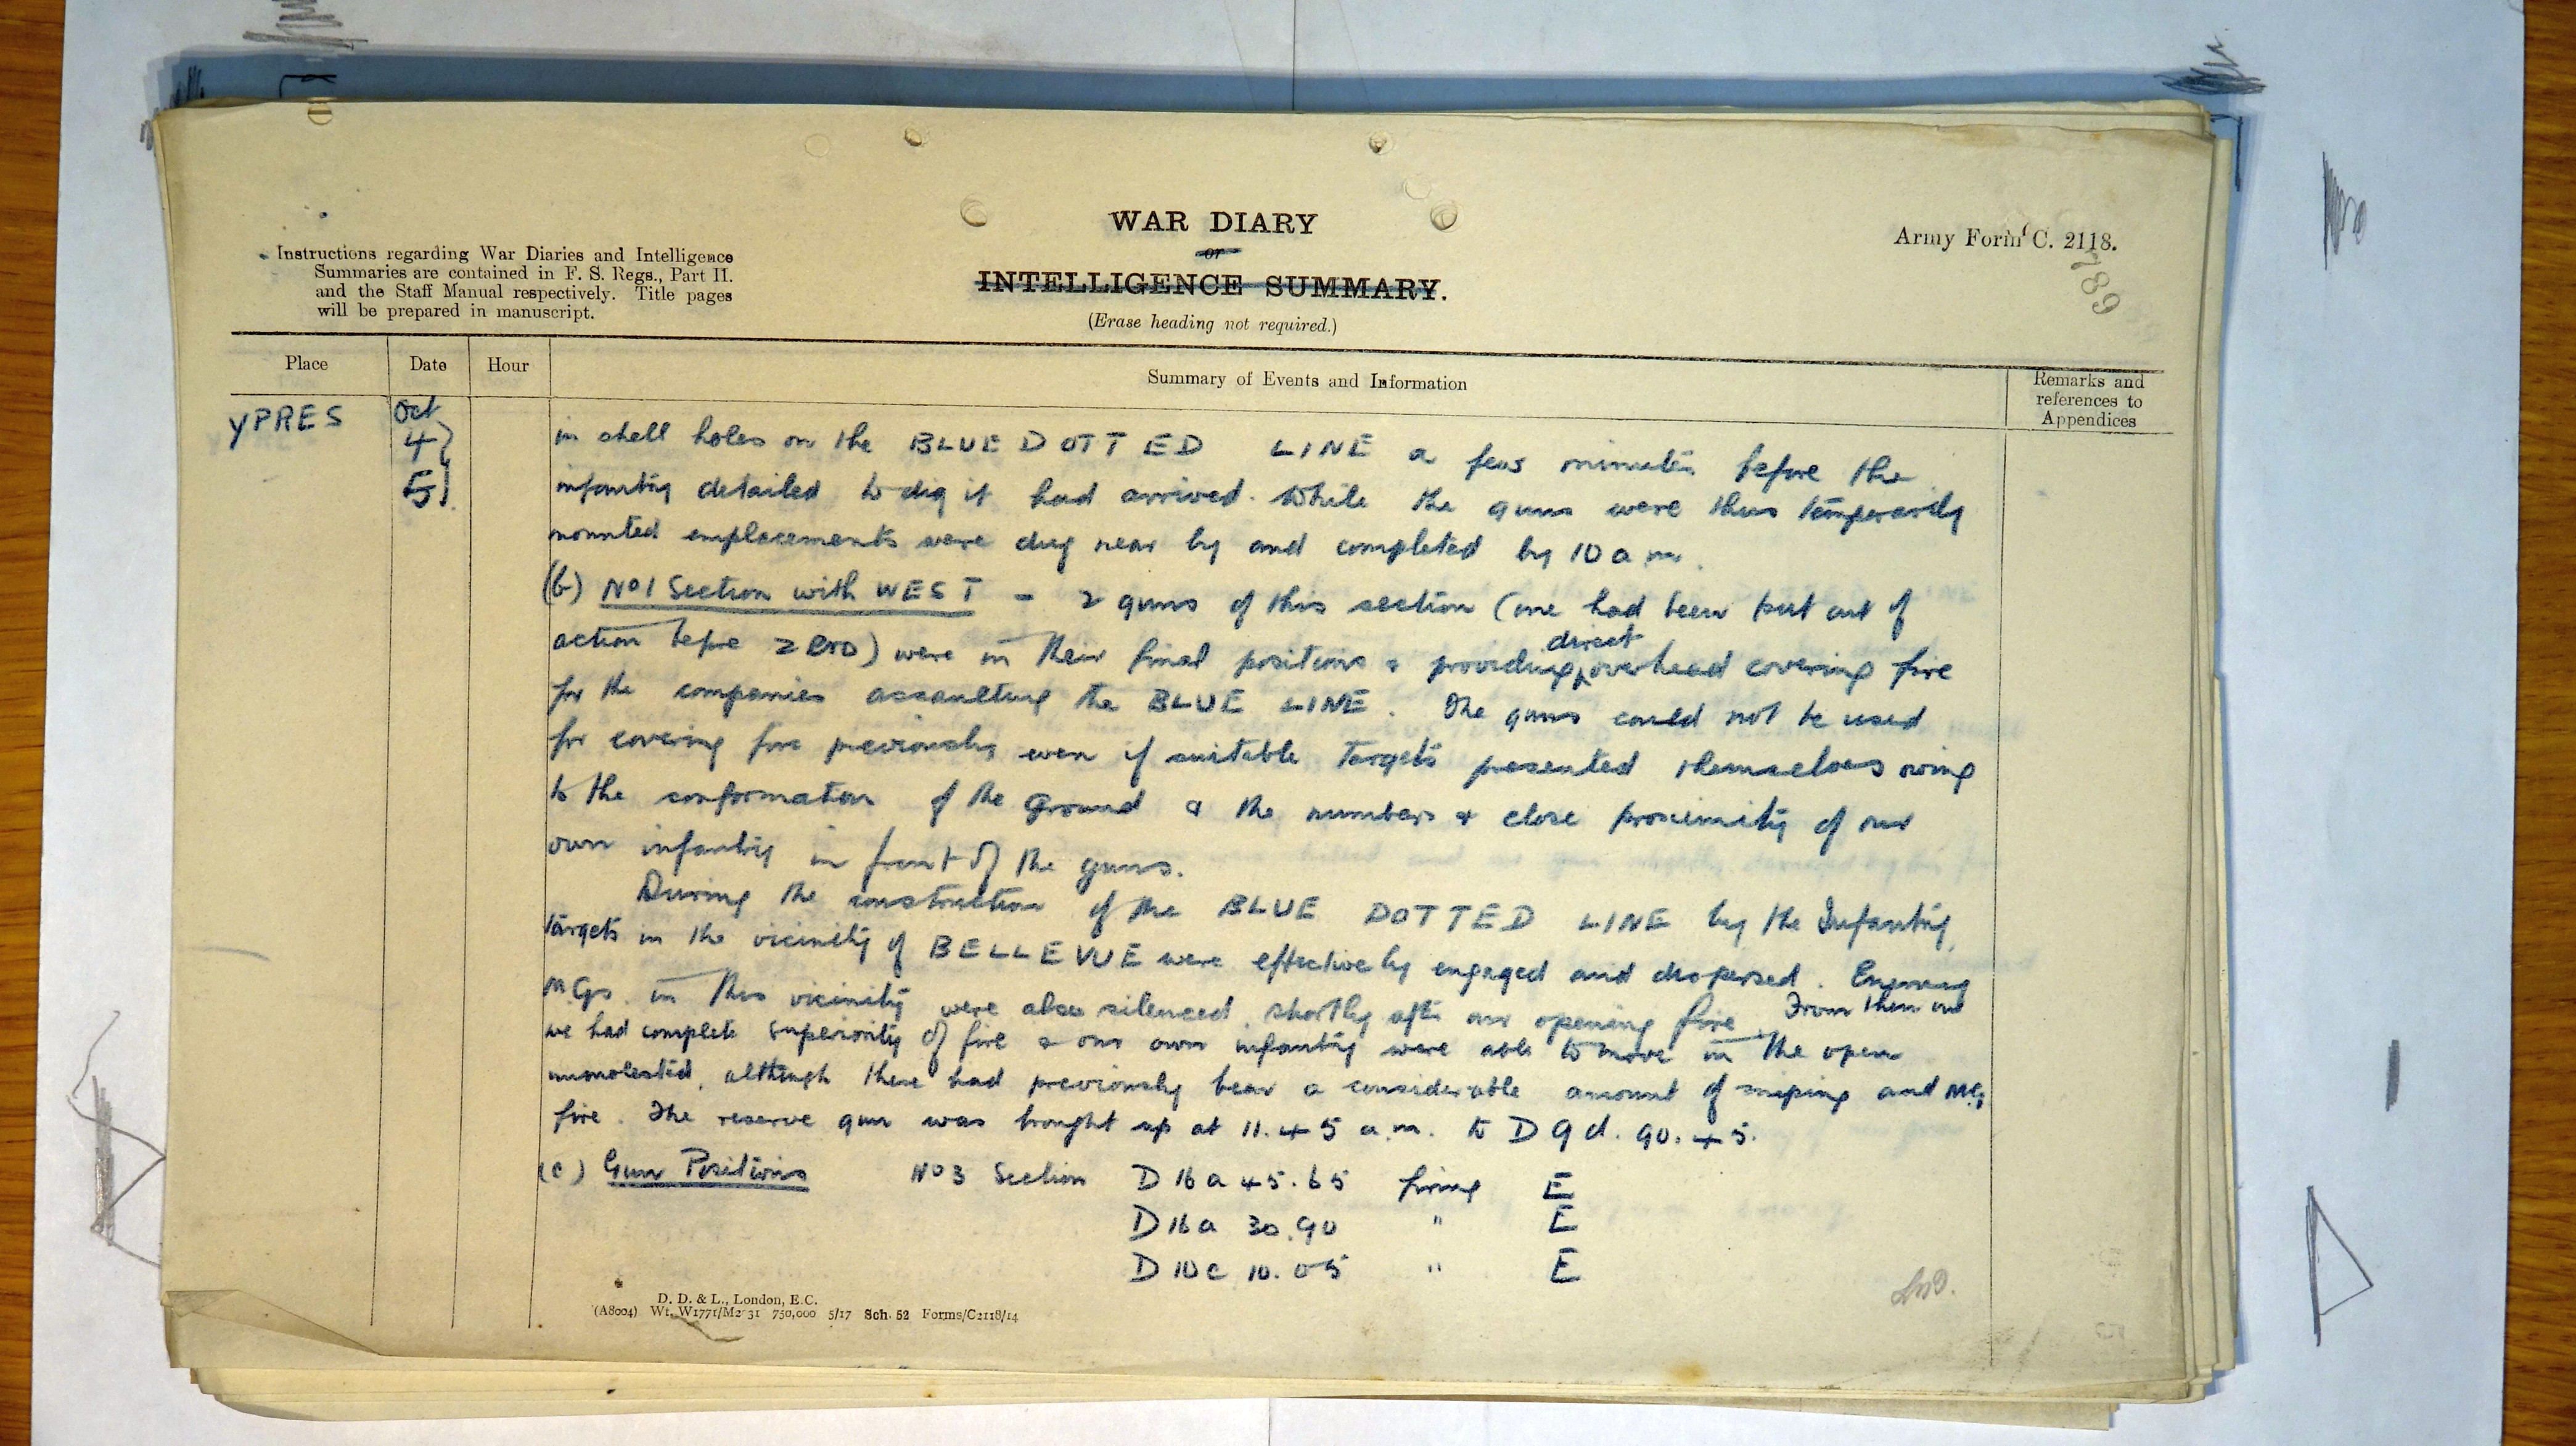 WAR DIARY
or
INTELLIGENCE SUMMARY.
(Erase heading not required.)
Instructions regarding War Diaries and Intelligence
Summaries are contained in F. S. Regs., Part II.
and the Staff Manual respectively. Title pages
will be prepared in manuscript.
Army Form C. 2118.
789
Place
Date
Hour
Summary of Events and Information
Remarks and
references to
Appendices
YPRES
Oct
4
5
in shell holes on the BLUE DOTTED LINE a few minutes before the
infantry detailed to dig it had arrived. While the guns were thus temporarily
mounted emplacements were dug near by and completed by 10 a.m.
(b) No 1 Section with WEST - 2 guns of this section (one had been put out of
action before zero) were in their final positions & providing direct overhead covering fire
for the companies assaulting the BLUE LINE. The guns could not be used
for covering fire previously even if suitable targets presented themselves owing
to the conformation of the ground & the numbers & close proximity of our
own infantry in front of the guns.
During the construction of the BLUE DOTTED LINE by the Infantry,
targets in the vicinity of BELLEVUE were effectively engaged and dispersed. Enemy
M.Gs. in this vicinity were also silenced shortly after our opening fire. From then on
we had complete superiority of fire & our own infantry were able to move in the open
unmolested, although there had previously been a considerable amount of sniping and M.G.
fire. The reserve gun was brought up at 11.45 a.m. to D 9 d. 90.45.
(c) Gun Positions No 3 Section D 16 a 45.65 firing E
D 16 a 30.90 " E
D 10 c 10.05 " E
D. D. & L., London, E.C.
(A8004) Wt. W1771/M2 31 750,000 5/17 Sch. 52 Forms/C2118/14